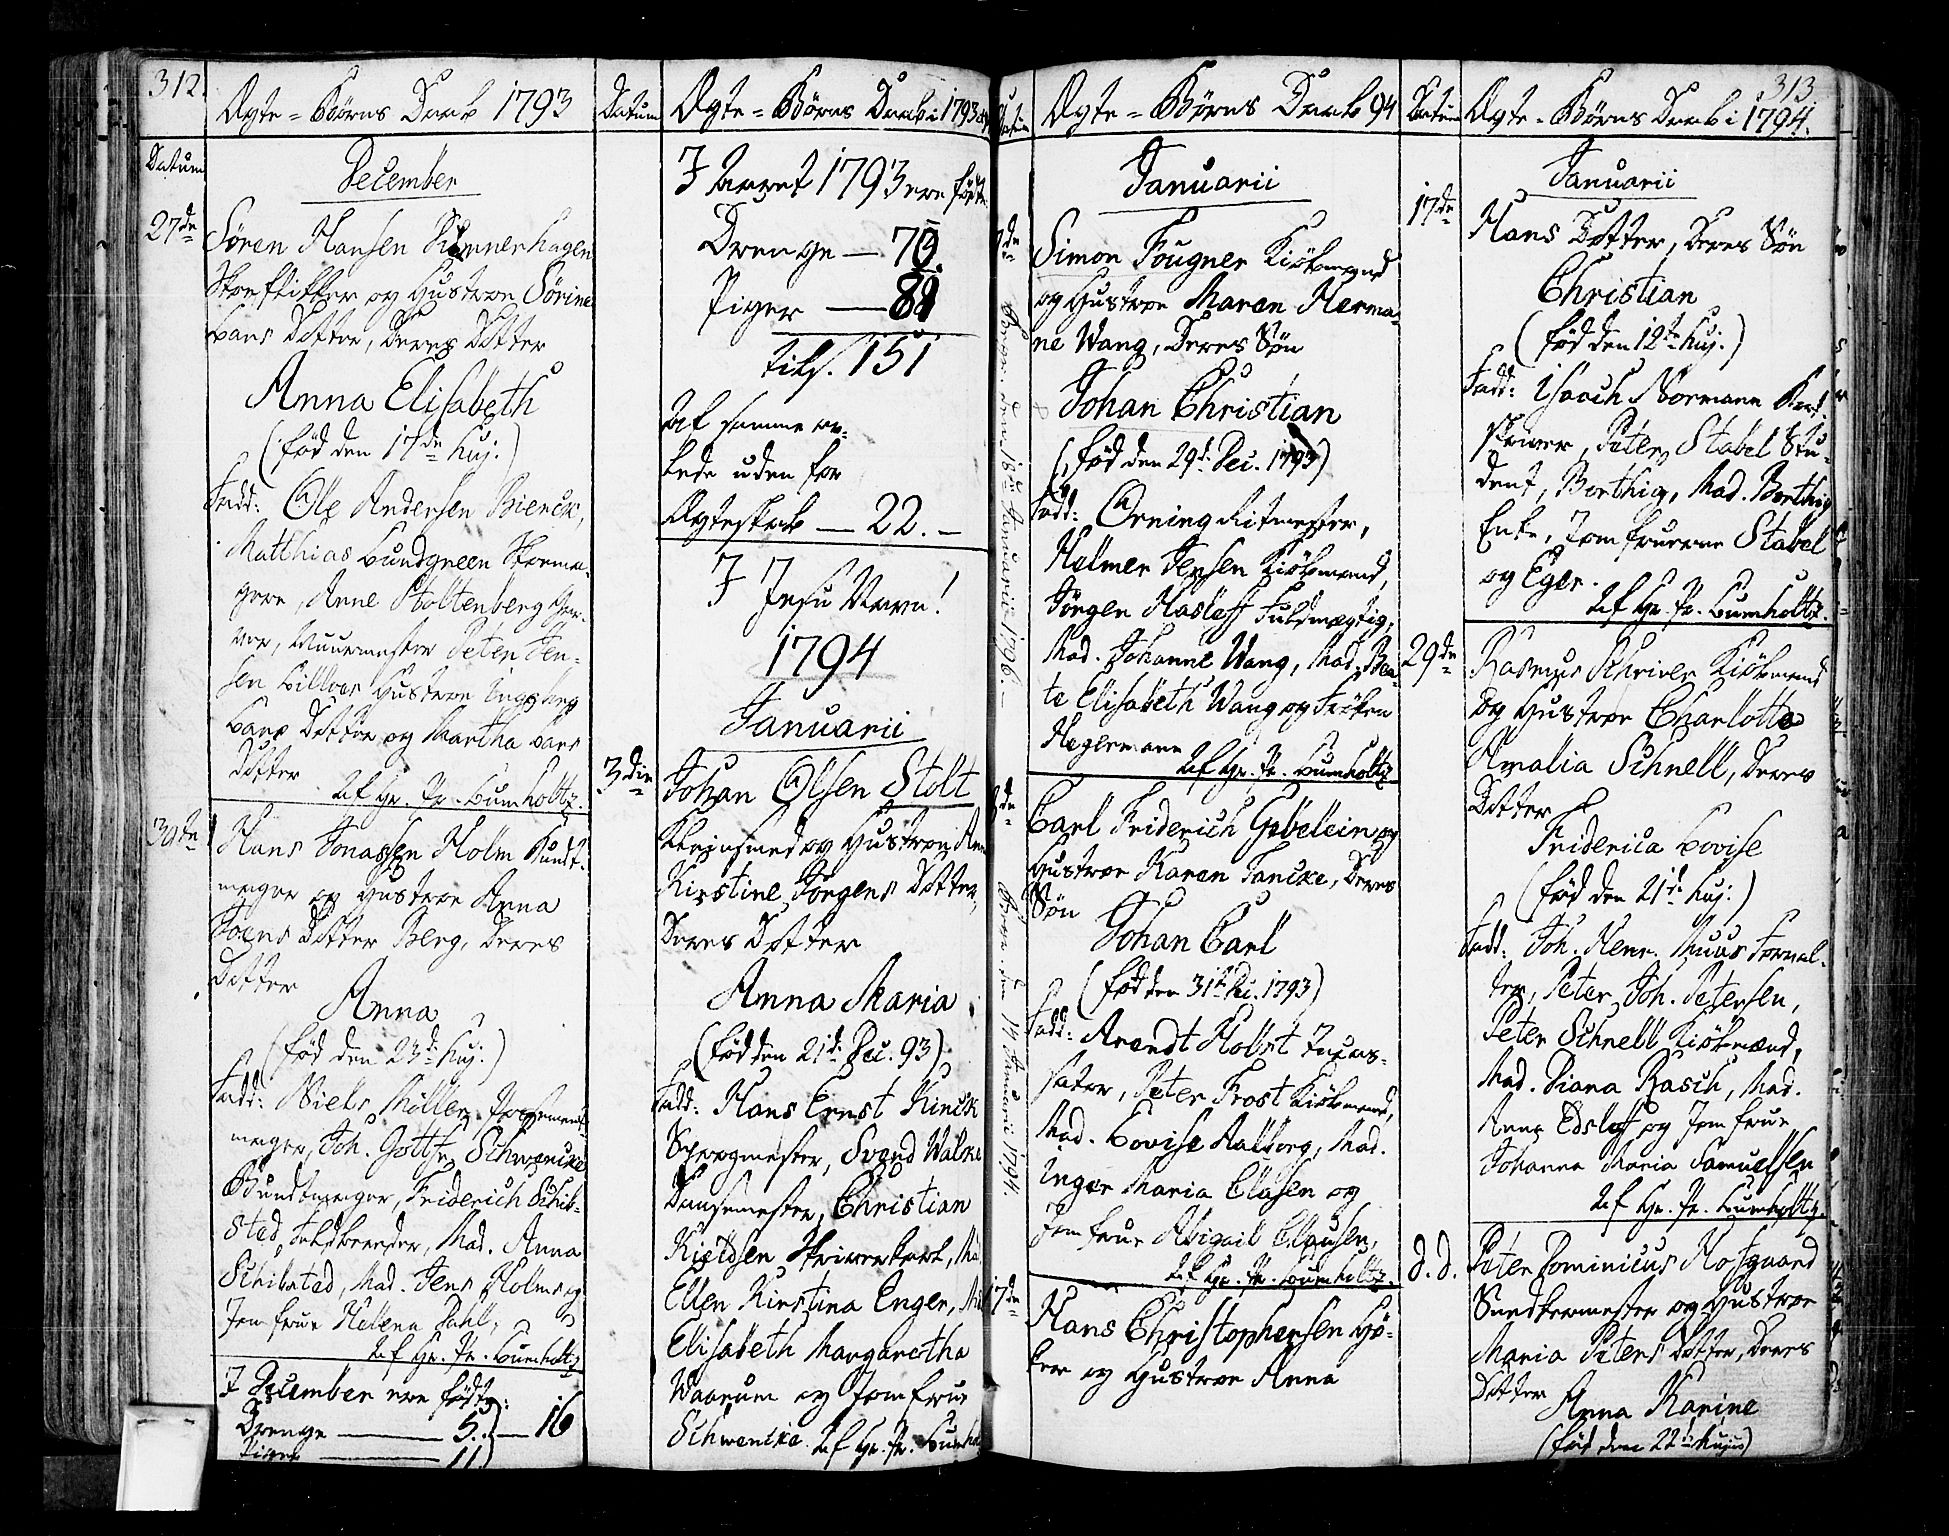 312.
Ægte-Børns Daab 1793
Datum
December
27de
Søren Hansen
Skoeflikker og Hustroe Sørine
Lars Dotter, Deres Dotter
Anna Elisabeth
(fød den 17de huj.)
Fadd: Ole Andersen Bienck,
Matthias Lundgreen Skoema-
gere, Arne Stoltenberg
Muurmester Peter Jen-
sen Hustroe Ingeborg
Lars Dotter og Martha Lars
Dotter
Af Hr. Pr. Lumholtz.
30de
Hans Jonassen Holm Bundt-
mager og Hustroe Anna
Joens Dotter Berg, Deres
Dotter
Anna
(fød den 23de huj.)
Fadd: Niels Møller
mager, Joh. Gottfr. Schwencke
Bundtmager, Friderich Schib-
sted, Mad. Anna
Schibsted, Mad. Jens Holms og
Jomfrue Helena Dahl,
Af Hr. Pr. Lumholtz
I December ere fødte:
Drenge — 5. — 16
Piger — 11
Datum
Ægte-Børns Daab i 1793
I Aaret 1793 ere fødte
Drenge — 70.
Piger — 81
tils. 151
Af samme er-
lede uden for
Ægteskab — 22. —
I Jesu Navn!
1794
Januarii
3die
Johan Olsen Stolt
Kleinsmed og Hustroe
Kirstine Jørgens Dotter,
Deres Dotter
Anna Maria
(fød den 21de Dec. 93)
Fadd: Hans Ernst Kinck
Sprogmester, Svend Walke
Dansemester, Christian
Kieldsen Skriverkarl,
Ellen Kirstina Enger,
Elisabeth Margaretha
Waarum og Jomfrue
Schwencke. Af Hr. Pr.
Ægte-Børns Daab 94
Januarii
Simon Fougner Kiøbmand
og Hustroe Maren Herma-
ne Wang, Deres Søn
Johan Christian
(fød den 29de Dec. 1793)
Fadd: Orning Ritmester,
Helmer Jensen Kiøbmand,
Jørgen Hasleff Fuldmægtig,
Mad. Johanne Wang, Mad. Bea-
te Elisabeth Wang og Frøken
Hegermann
Af Hr. Pr. Lumholtz
Carl Friderich Gebelein og
Hustroe Karen Fancke, Deres
Søn
Johan Carl
(fød den 31te Dec. 1793)
Fadd: Arendt Holst Incas-
sator, Peter Frost Kiøbmænd,
Mad. Lovise Aalborg, Mad.
Inger Maria Clasen og
Jomfrue Abigail Clausen,
Af Hr. Pr. Lumholtz.
17de
Hans Christophersen Hø-
ker og Hustroe Anna
313
Datum
Ægte-Børns Daab i 1794.
Januarii
17de
Hans Dotter, Deres Søn
Christian
(fød den 12te huj.)
Fadd: Isaach Normann
Peter Stabel Stu-
dent, Borthig, Mad. Borthig
Enke, Jomfruerne Stabel
og Eger.
Af Hr. Pr. Lumholtz.
29de
Rasmus Schriver Kiøbmand
og Hustroe Charlotta
Amalia Schnell, Deres
Dotter
Friderica Lovise
(fød den 21de huj.)
Fadd: Joh. Henr. Muus Forval-
ter, Peter Joh. Petersen,
Peter Schnell Kiøbmænd,
Mad. Diana Rasch, Mad.
Anna Edsleff og Jomfrue
Johanna Maria Samuelsen
Af Hr. Pr. Lumholtz.
d. d.
Peter Dominicus Hofgaard
og Hustroe
Maria Peters Dotter, Deres
Dotter
Anna Karine
(fød den 22de hujus)